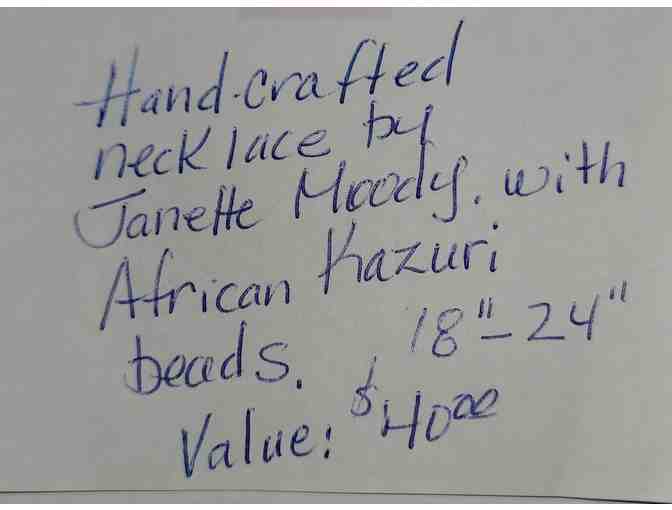 Hand-crafted
necklace by
Janette Moody. with
African Kazuri
beads. 18"-24"
Value: $40.00